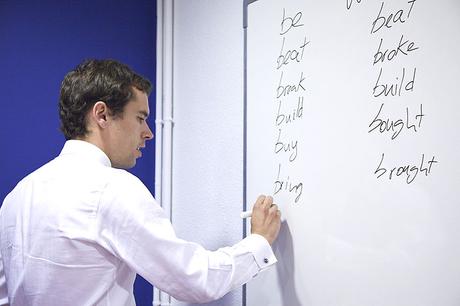 be
beat beat
break broke
build build
buy bought
bring brought